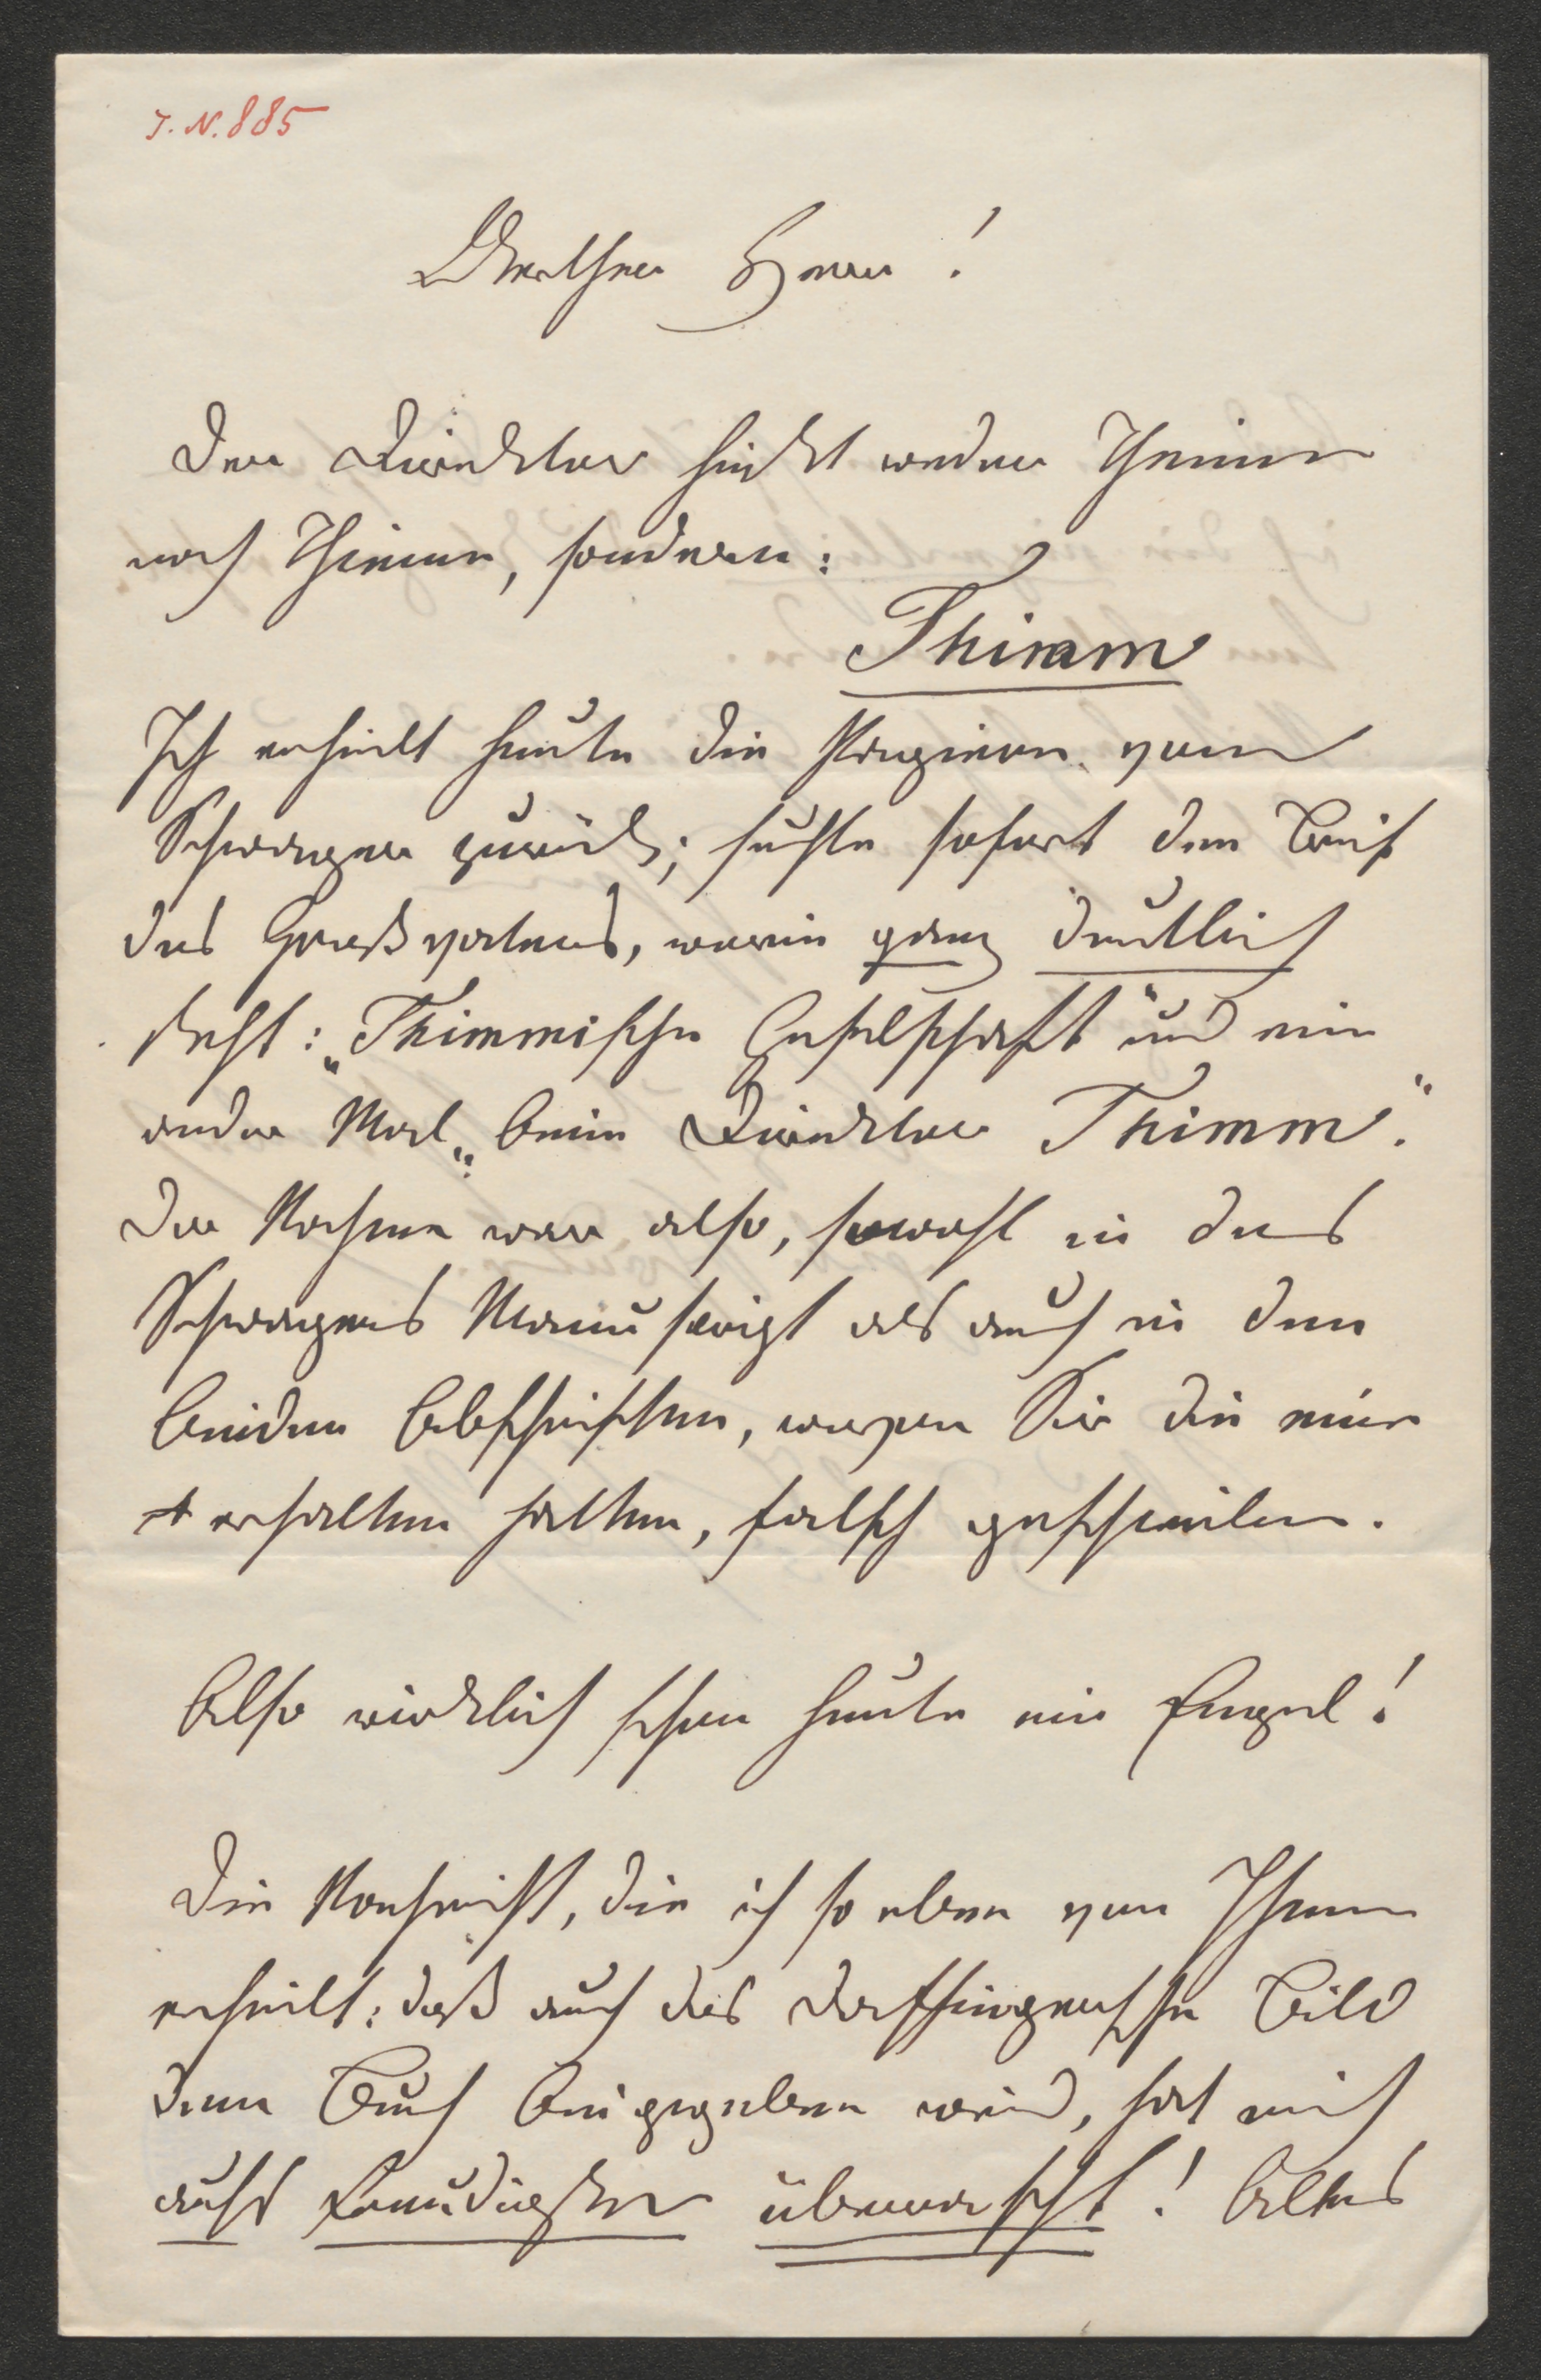 J. N. 885
Werther Herr!
Der Direktor hieß weder Theim
noch Thieme, sondern:
Thimm
Ich erhielt heute die Papiere vom
Schwager zurück; suchte sofort den Brief
des Großvaters, worin ganz deutlich
steht: „Thimmische Gesellschaft" und ein
ander Mal „beim Direktor Thimm".
Der Nahme war also, sowohl in des
Schwagers Manuskript als auch in den
beiden Abschriften, wovon Sie die eine
erhalten hatten, falsch geschrieben.
Also wirklich schon heute ein Engel!
Die Nachricht, die ich so eben von Ihnen
erhielt: daß auch das Daffingersche Bild
dem Buch beigegeben wird, hat mich
aufs freudigste überrascht! Alles